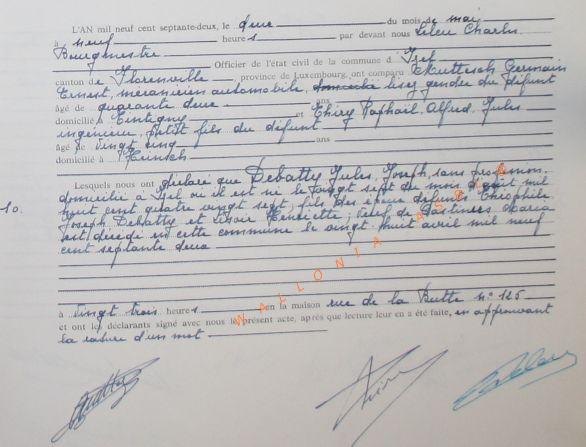 L'AN mil neuf cent septante-deux, le deux du mois de mai
à neuf heures par devant nous Lileu Charles
Bourgmestre Officier de l'état civil de la commune d'Izel
canton de Florenville, province de Luxembourg, ont comparu Germain
Ernest, mécanicien automobile, domicilié lisez gendre du défunt
âgé de quarante deux ans
domicilié à Tintigny et Thiry Raphaël, Alfred, Jules
ingénieur, petit fils du défunt
âgé de vingt cinq ans
domicilié à Heinsch
Lesquels nous ont déclaré que Debatty Jules, Joseph, sans profession
domicilié à Izel où il est né le vingt sept du mois d'août mil
10. huit cent quatre vingt sept, fils des époux défunts Théophile
Joseph Debatty et Henriette, veuf de Maria
est décédé en cette commune le vingt huit avril mil neuf
cent septante deux
à vingt trois heures en la maison rue de la Butte n° 125
et ont les déclarants signé avec nous le présent acte, après que lecture leur en a été faite, en approuvant
la rature d'un mot
WALLONIA ASBL